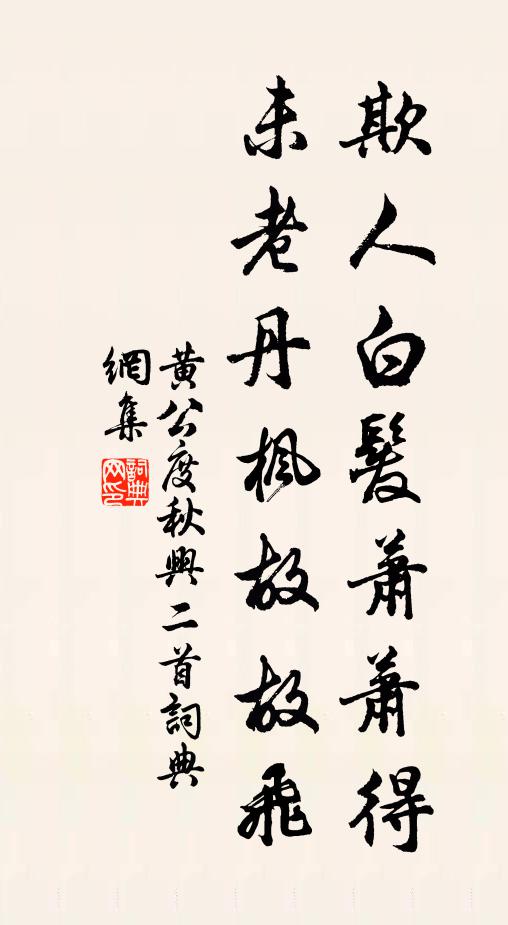 欺人白髮蕭蕭得
未老丹楓故故飛
黃公度秋興二首詞典
網集
詞典網印